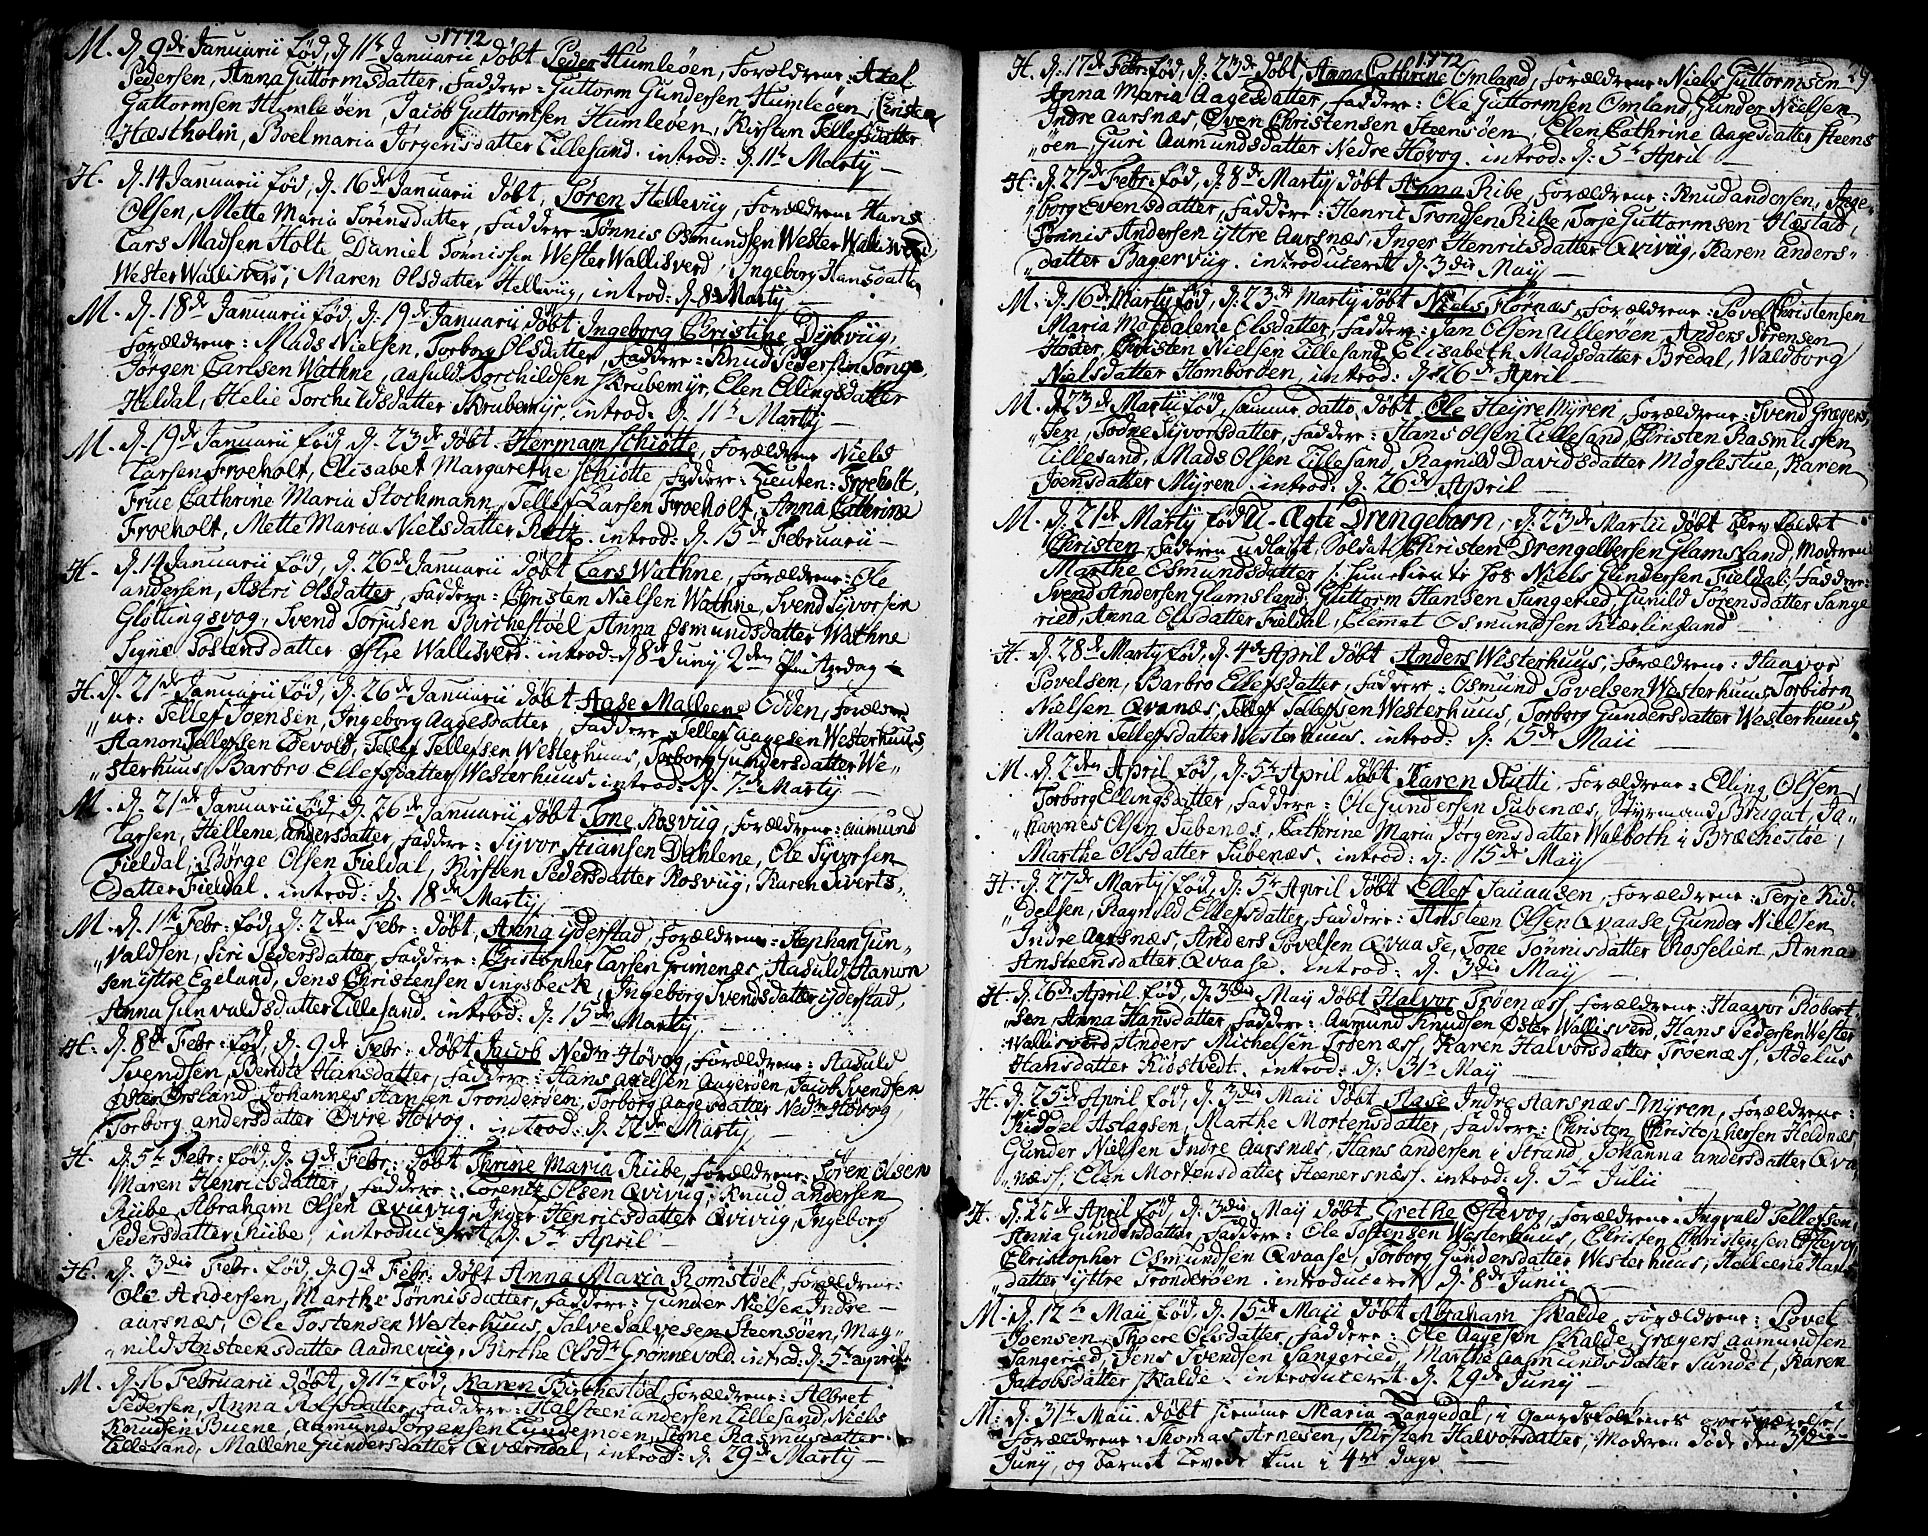 1772
M. d. 9de Januarii fød, d. 11te Januarii døbt Peder Humleøen, Forældrene: Axel
Pedersen, Anna Guttormsdatter, Faddere: Guttorm Gundersen Humleøen, Christen
Guttormsen Humleøen, Jacob Guttormsen Humleøen, Kirsten Tellefsdatter
Hæstholm, Boelmaria Jørgensdatter Lillesand. introd: d. 11te Martij —
H. d. 14 Januarii fød, d. 16de Januarii døbt, Søren Hellevig, Forældrene Hans
Olsen, Mette Maria Sørensdatter, Faddere: Tønnis Osmundsen Wester Wallisverd
Lars Madsen Holte Daniel Tønnissen Wester Wallisverd, Ingeborg Hansdatter
Wester Wallisverd, Maren Olsdatter Hellevig, introd: d. 8de Martij —
M. d. 18de Januarii fød, d. 19de Januarii døbt Ingeborg Christine Dybvig,
Forældrene: Mads Nielsen, Torborg Olsdatter, Faddere: Knud Pedersen Songe,
Jørgen Carlsen Wathne, Aasuld Torchildsen Skrubemyr, Elen Ellingsdatter
Heldal, Helie Torchildsdatter Skrubemyr. introd: d. 11te Martij —
M. d. 19de Januarii fød, d. 23de døbt. Herman Schiøtte, Forældrene Niels
Larsen Froeholt, Elisabet Margarethe Schiøtte, Faddere: Lieuten: Froeholt,
Frue Cathrine Maria Stochmann, Tellef Larsen Froeholt, Anna Cathrine
Froeholt, Mette Maria Nielsdatter. introd: d. 15de Februarii —
H. d. 14 Januarii fød, d. 26de Januarii døbt Lars Wathne, Forældrene: Ole
andersen, Astri Olsdatter, Faddere: Christen Nielsen Wathne, Svend Syvorsen
Gløttingsvog, Svend Torjusen Birchestøel, Anna Osmundsdatter Wathne
Signe Tostensdatter Østre Wallisverd. introd: d. 8de Junij 2den Pintzedag
H. d. 21de Januarii fød, d. 26de Januarii døbt Aase Malleene Odden, Foreldre
ne: Tellef Joensen, Ingeborg Aagesdatter, Faddere: Tellef Aagesen Westerhuus,
Aanon Tellefsen Toevold, Tellef Tellefsen Westerhuus, Torborg Gundersdatter We-
sterhuus, Barbro Ellefsdatter Westerhuus. introd: d. 7de Martij —
M. d. 21de Januarii fød, d. 26de Januarii døbt Tone Rosvig, Forældrene: Aamund
Larsen, Hellene andersdatter, Faddere: Syvor Stiansen Dahlene, Ole Syvorsen
Fieldal, Børge Olsen Fieldal, Kirsten Pedersdatter Rosvig, Karen Siverts-
datter Fieldal. introd: d. 18de Martij
M. d. 1te Febr: fød, d. 2den Febr: døbt, Anna yderstad, Forældrene: Staphan Gun-
valdsen, Siri Pedersdatter, Faddere: Christopher Larsen Grimenæs, Aasuld Aanon
sen yttre Egeland, Jens Christensen Singsbeck, Ingeborg Svendsdatter yderstad,
Anna Gunvaldsdatter Lillesand. introd: d. 15de Martij
H. d. 8de Febr: fød, d. 9de Febr: døbt Jacob Nedre Høvog, Forældrene: Aasuld
Svendsen, Berdte Hansdatter, Faddere: Hans Axelsen Aagerøen, Jacob Svendsen
Øster Ørsland, Johannes Hansen Trondersøen, Torborg Aagesdatter Nedre Høvog,
Torborg andersdatter Øvre Høvog. introd: d. 22de Martij —
H. d. 5te Febr: fød, d. 9de Febr: døbt Thrine Maria Riibe, Forældrene: Søren Olsen
Maren Henricsdatter, Faddere: Lorentz Olsen Qvivig, Knud andersen
Riibe, Abraham Olsen Qvivig, Inger Henricsdatter Qvivig, Ingeborg
Pedersdatter Riibe. introduceret d. 5te April —
H. d. 3die Febr. fød, d. 9de Febr: døbt Anna Maria Romstøel, Forældrene:
Ole Andersen, Marthe Tønnisdatter, Faddere: Gunder Nielsen Indre
aarsnæs, Ole Tostensen Westerhuus, Salve Salvesen Steensøen, Mag-
nild Ansteensdatter Aadnevig, Birthe Olsdtr Grønnevold. introd: d. 5te aprilis
M. d. 16 Februarii døbt, d. 11te fød, Karen Birchestøl, Forældrene: Albret
Pedersen, Anna Rolfsdatter, Faddere: Halsteen andersen Lillesand, Niels
Knudsen Buene, Aamund Jørgensen Lundemoen, Signe Rasmusdatter
Lillesand, Mallene Gundersdatter Qværndal, introd: d. 29de Martij —
1772
29
H. d. 17de Febr: fød, d. 23de døbt, Anne Cathrine Omland, Forældrene: Niels Guttormsen
Anna Maria Aagesdatter, Faddere: Ole Guttormsen Omland, Gunder Nielsen
Indre Aarsnæs, Even Christensen Steensøen, Elen Cathrine Aagesdatter Steens
øen, Guri Aamundsdatter Nedre Høvog. introd: d. 5te April —
H. d. 27de Febr: fød, d. 8de Martij døbt Anna Ribe, Forældrene: Knud andersen, Inge-
borg Evensdatter, Faddere: Henric Trondsen Ribe, Torje Guttormsen Hæstad,
Tønnis Andersen yttre Aarsnæs, Inger Henricsdatter Qvivig, Karen anders-
datter Bagervig. introduceret d. 3die Maij —
M. d. 16de Martij fød, d. 23de Martij døbt Niels Flørnæs, Forældrene: Povel Christensen
Maria Magdalene Olsdatter, Faddere: Jan Olsen Ullerøen, Anders Sørensen
Høster, Christen Nielsen Lillesand, Elisabeth Madsdatter Bredal, Waldborg
Nielsdatter Homborøen, introd: d. 26de April —
M. d. 23de Martij fød, samme dato, døbt, Ole Heyremyren, Forældrene: Svend Grægers-
sen, Todne Syvorsdatter, Faddere: Hans Olsen Lillesand, Christen Rasmussen
Lillesand, Mads Olsen Lillesand, Ragnild Davidsdatter Møglestue, Karen
Joensdatter Myren. introd: d. 26de April —
M. d. 21de Martij fød U-Ægte Drengebarn, d. 23de Martii døbt blev kaldet
Christen, Faderen udlagt Soldat Christen Drengelbersen Glamsland, Moderen
Marthe Osmundsdatter, tienende hos Niels Gundersen Fieldal, Faddere:
Svend Andersen Glamsland, Guttorm Hansen Sangeried, Gunild Sørensdatter Sange
ried, Anna Olsdatter Fieldal, Clemet Osmundsen Kierlingland —
H. d. 28de Martij fød, d. 4de April døbt Anders Westerhuus, Forældrene: Haavor
Povelsen, Barbro Ellefsdatter, Faddere: Osmund Povelsen Westerhuus, Torbiørn
Nielsen Qvanæs, Tellef Tellefsen Westerhuus, Torborg Gundersdatter Westerhuus,
Maren Tellefsdatter Westerhuus. introd: d. 15de Maii —
M. d. 2den April fød, d. 5te April døbt Karen Stutti, Forældrene: Elling Olsen
Torborg Ellingsdatter, Faddere: Ole Gundersen Subenæs, Styrmand Brugat, Jo-
hannes Olsen Subenæs, Cathrine Maria Jørgensdatter Walboth i Bræchestøe,
Marthe Olsdatter Subenæs. introd: d. 15de Maij
H. d. 27de Martij fød, d. 5te April døbt Ellef Sauausen, Forældrene: Terje Kid-
delsen, Ragnild Ellefsdatter, Faddere: Ansteen Olsen Qvaase, Gunder Nielsen
Indre Aarsnæs, Anders Povelsen Qvaase, Tone Tønnisdatter Rosselien, Anna
Ansteensdatter Qvaase. introd: d. 3die Maij —
H. d. 16de April fød, d. 3die Maij døbt Halvor Trøenæss, Forældrene: Haavor Robert
sen, Anna Hansdatter, Faddere: Aamund Knudsen Øster Wallisverd, Hans Pedersen Wester
Wallisverd, Anders Michelsen Trøenæss, Karen Halvorsdatter Trøenæss, Adelus
Hansdatter Kidstvedt. introd: d. 31te Maij —
H. d. 25de April fød, d. 3die Maii døbt Aase Indre Aarsnæs-Myren, Forældrene:
Kiddel Aslagsen, Marthe Mortensdatter, Faddere: Christen Christophersen Heldnæs,
Gunder Nielsen Indre Aarsnæs, Hans andersen i Strand, Johanna andersdatter Qva-
næss, Elen Mortensdatter Heenersnæss. introd: d. 5te Julii —
H. d. 25de April fød, d. 3die Maij døbt Grethe Østevog, Forældrene: Ingvald Tellefsen,
Anna Gundersdatter, Faddere: Ole Tostensen Westerhuus, Christen Christensen Østevog,
Christopher Osmundsen Qvaase, Torborg Gundersdatter Westerhuus, Helleene Hans
datter yttre Trondersøen. introduceret d. 8de Junii —
M. d. 12te Maii fød, d. 15de Maii døbt Abraham Skalde, Forældrene: Povel
Joensen, Thore Olsdatter, Faddere: Ole Aagesøn Skalde, Grægers aamundsen
Sangeried, Jens Svendsen Sangeried, Marthe Aasmundsdatter Sundet, Karen
Jacobsdatter Skalde. introduceret d. 29de Junij —
M. d. 31te Maii døbt hiemme Maria Langedal, i Gaardsfolkenes overværelse,
Forældrene: Thomas Arnesen, Kirsten Halvorsdatter, Moderen døde den 3die
Junij, og barnet levede kun i 4re dage —